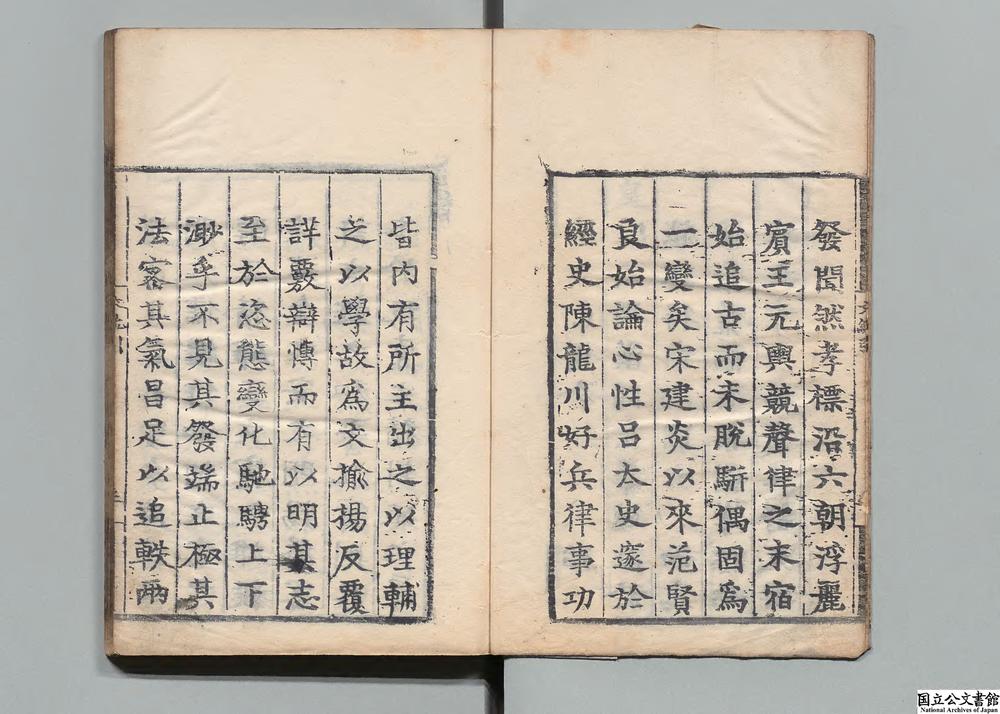 發聞然孝標沿六朝浮麗
賓王元輿競聲律之末宿
始追古而未脫駢偶固爲
一變矣宋建炎以來范賢
良始論心性呂太史邃於
經史陳龍川好兵律事功
皆内有所主出之以理輔
之以學故爲文揄揚反覆
詳覈辯慱而有以明其志
至於恣態變化馳騁上下
渺乎不見其發端止極其
法宻其氣昌足以追軼兩
国立公文書館
National Archives of Japan